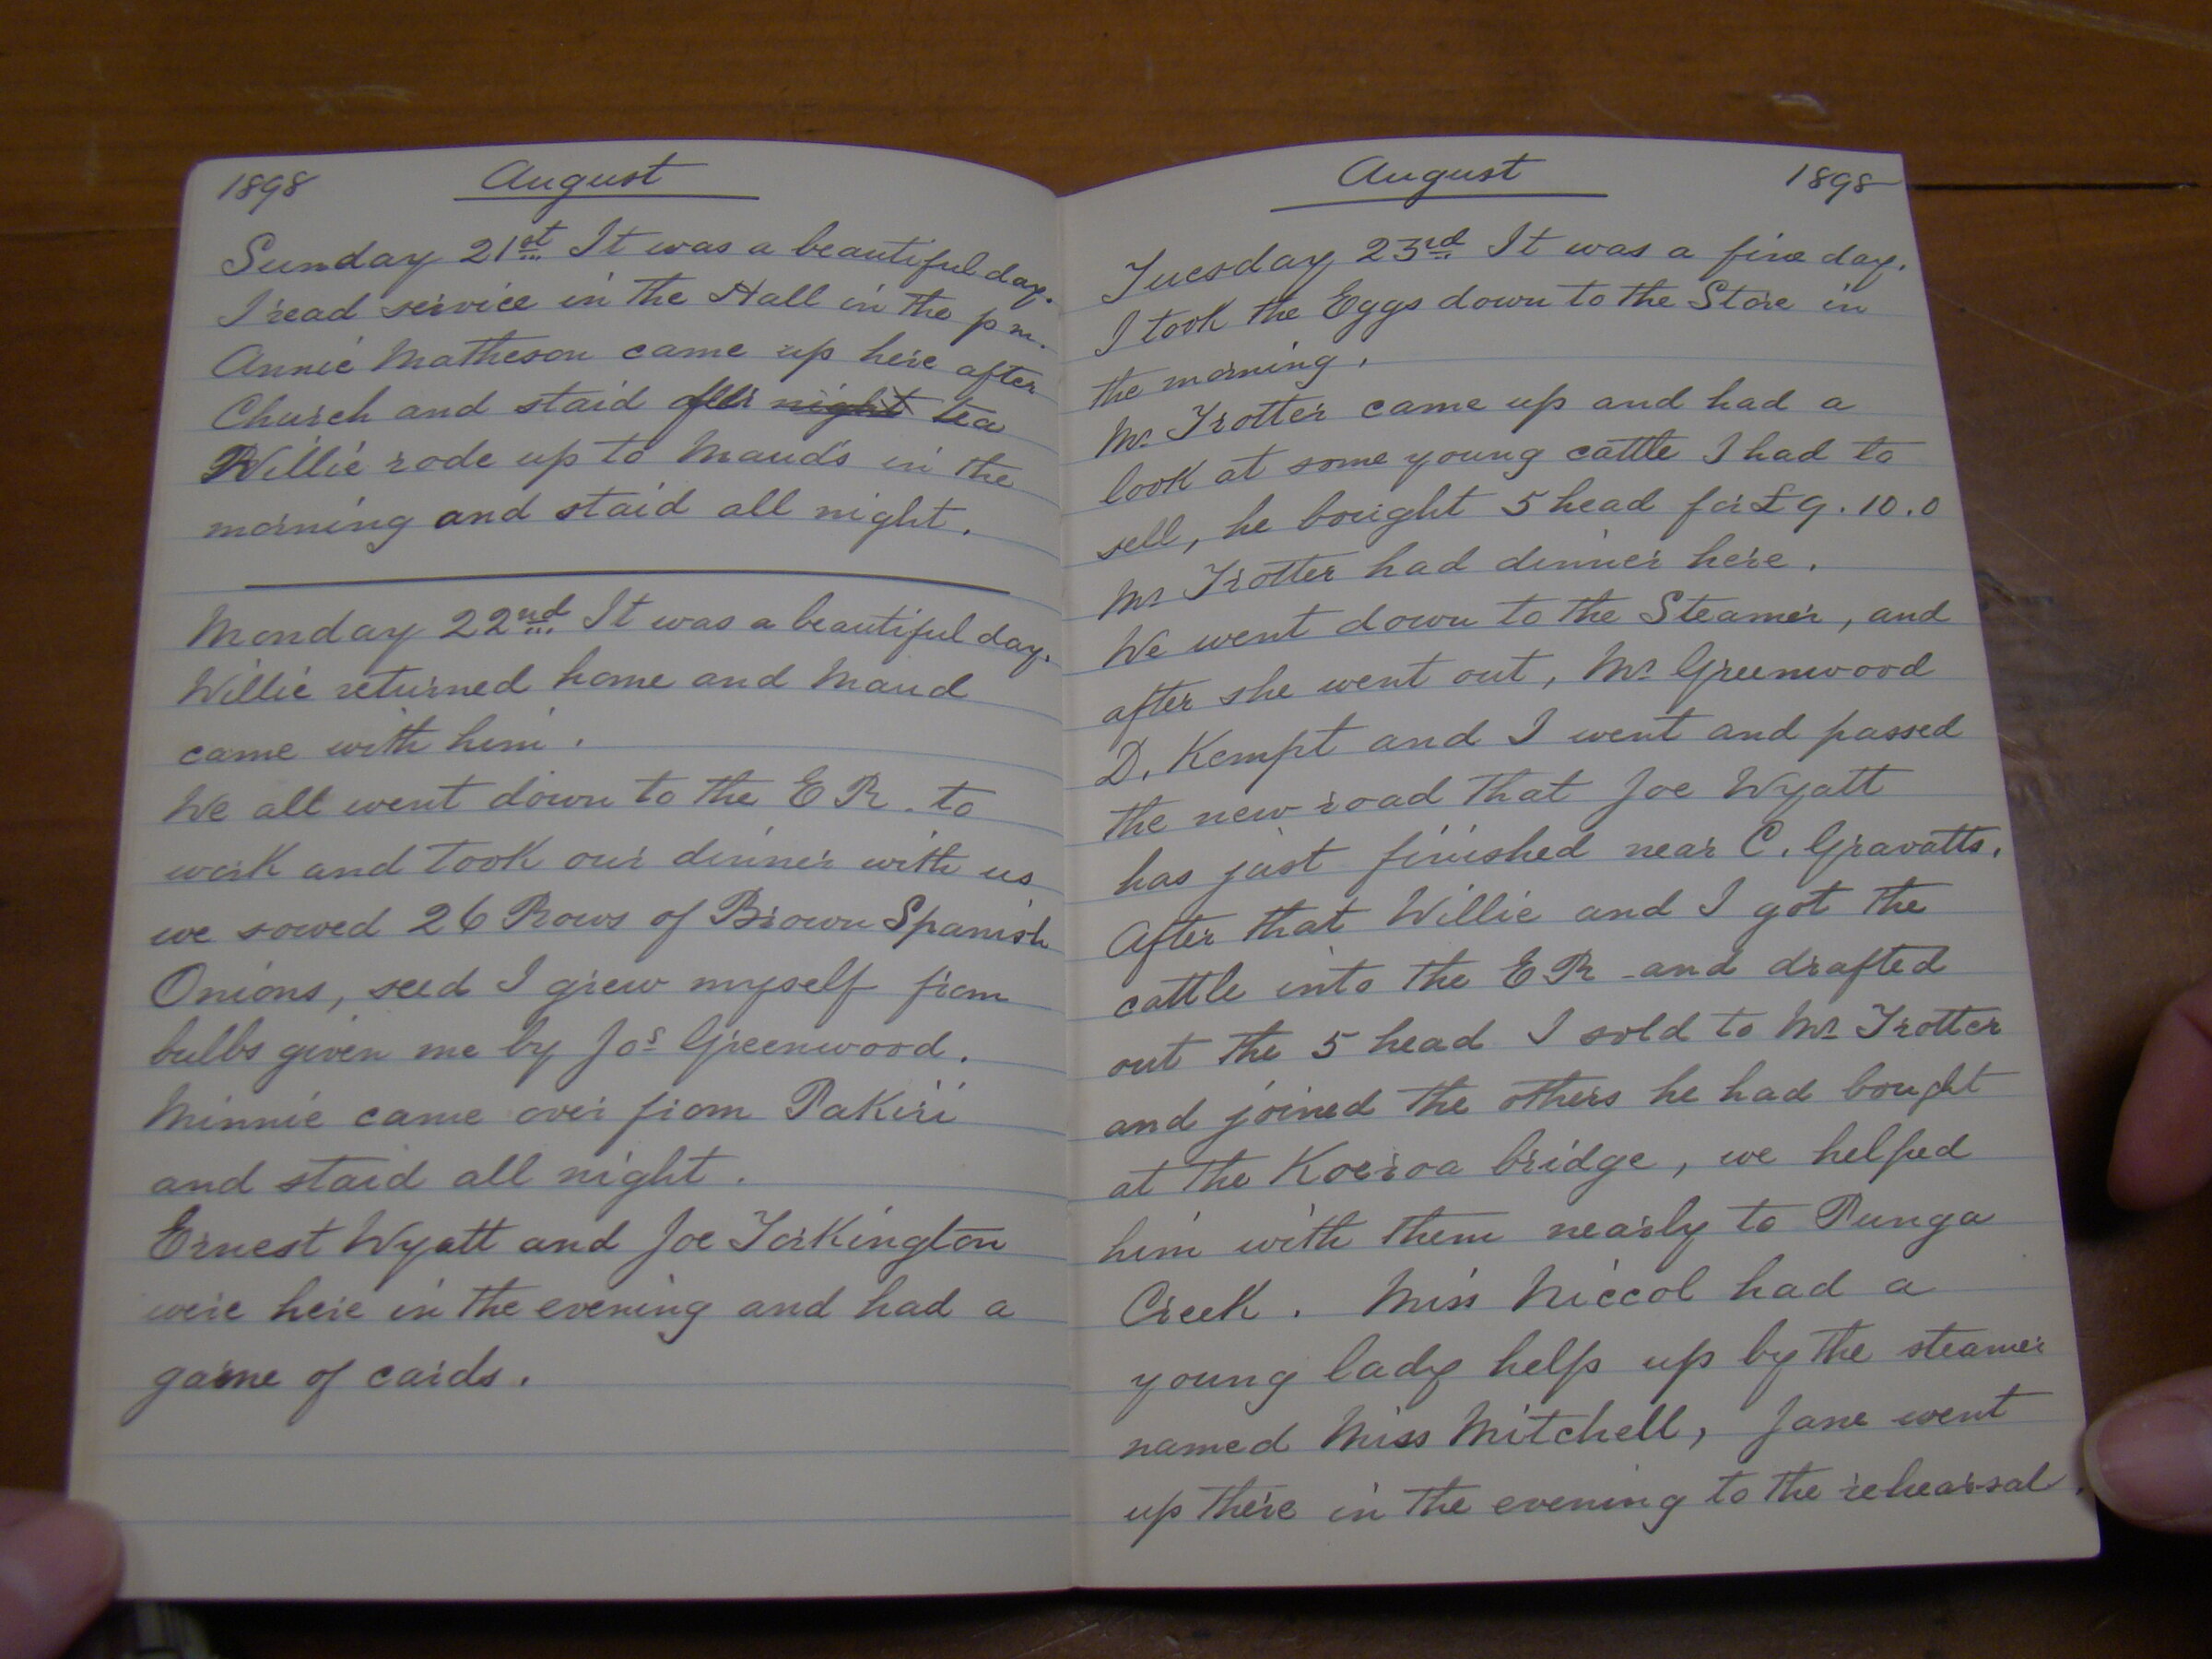 1898 August
Sunday 21st It was a beautiful day.
I read service in the Hall in the p m.
Annie Matheson came up here after
Church and staid night tea
Willie rode up to Maud's in the
morning and staid all night.
Monday 22nd It was a beautiful day.
Willie returned home and Maud
came with him.
We all went down to the E R. to
work and took our dinner with us
we sowed 26 Rows of Brown Spanish
Onions, seed I grew myself from
bulbs given me by Jos Greenwood.
Minnie came over from Pakiri
and staid all night.
Ernest Wyatt and Joe Torkington
were here in the evening and had a
game of cards.
August 1898
Tuesday 23rd It was a fine day.
I took the Eggs down to the Store in
the morning.
Mr Trotter came up and had a
look at some young cattle I had to
sell, he bought 5 head for £9.10.0
Mr Trotter had dinner here.
We went down to the Steamer, and
after she went out, Mr Greenwood
D. Kempt and I went and passed
the new road that Joe Wyatt
has just finished near C. Gravatts.
After that Willie and I got the
cattle into the E R and drafted
out the 5 head I sold to Mr Trotter
and joined the others he had bought
at the Koeroa bridge, we helped
him with them nearly to Punga
Creek. Miss Niccol had a
young lady help up by the steamer
named Miss Mitchell, Jane went
up there in the evening to the rehearsal.